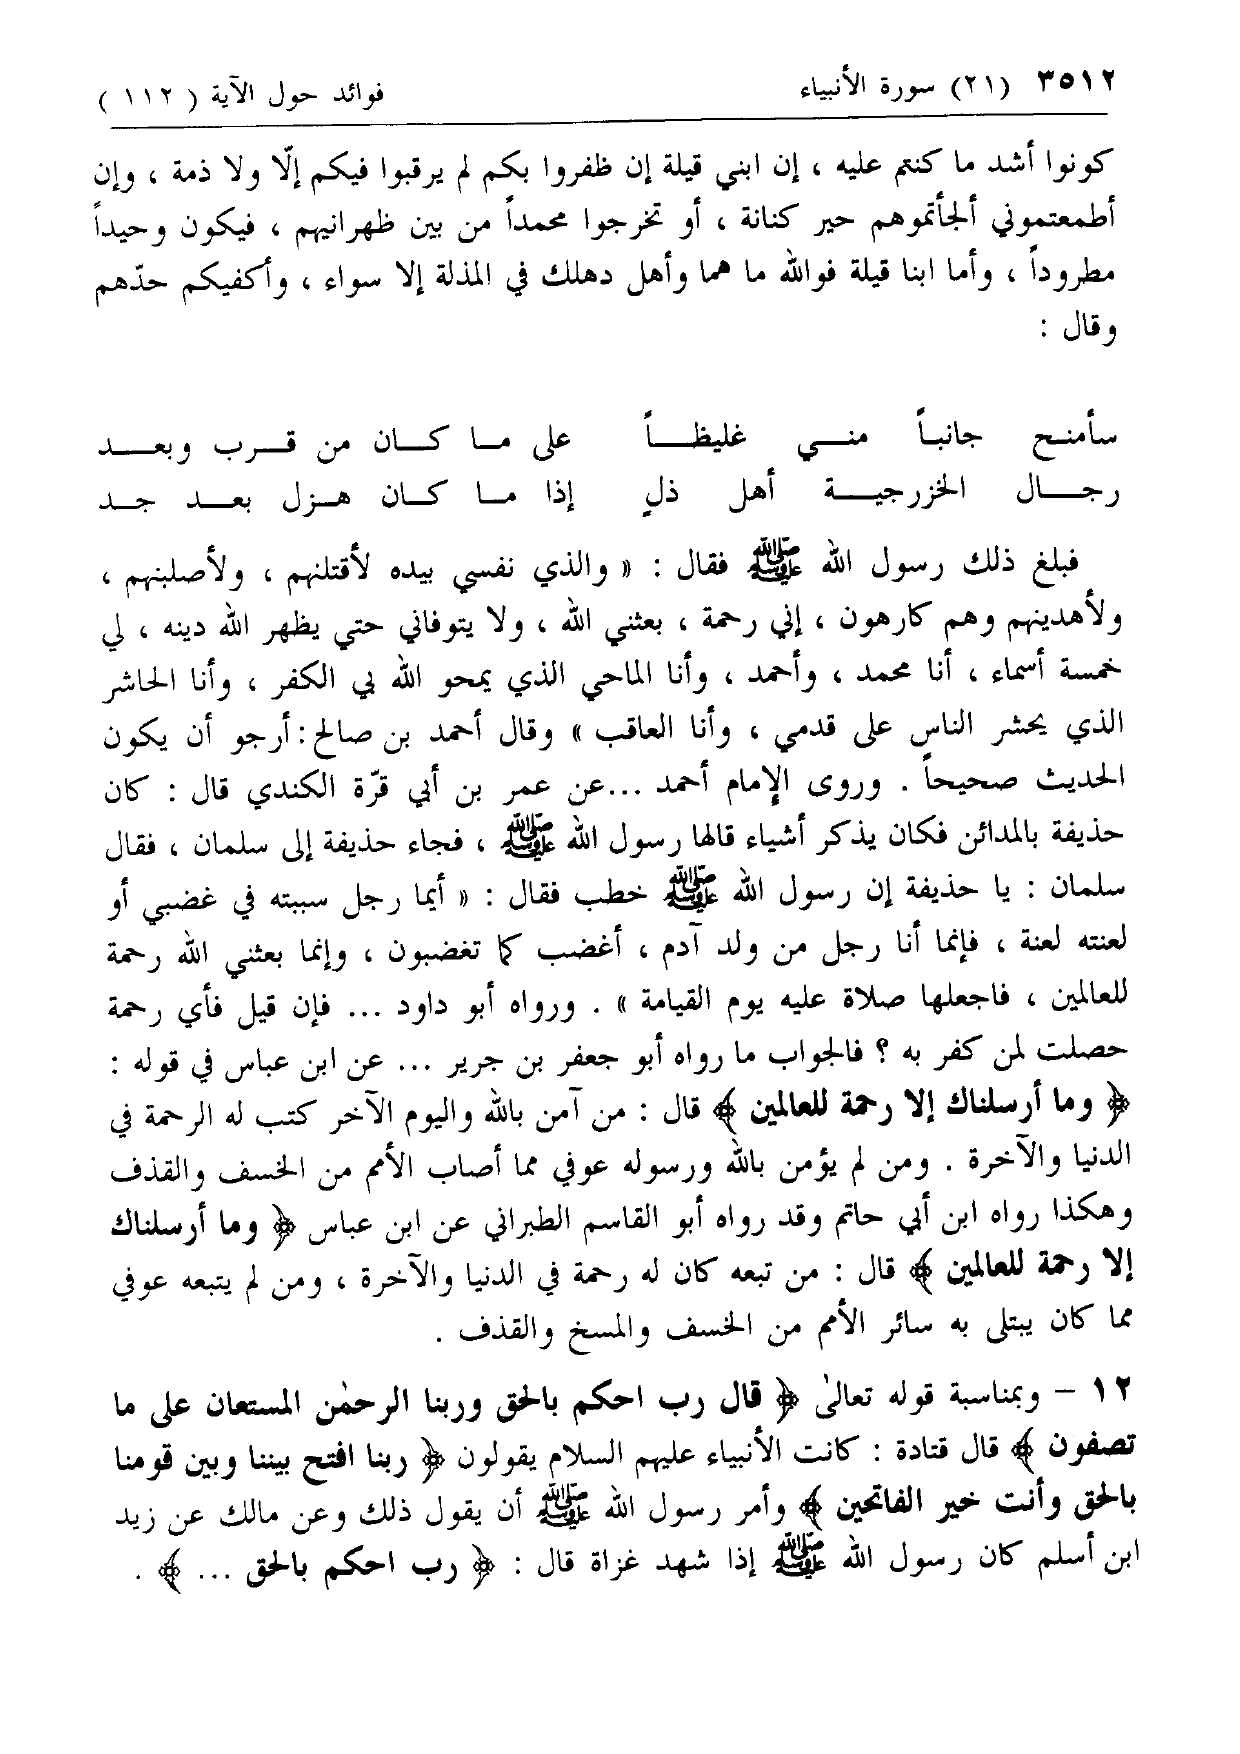 ٣٥١٢ (٢١) سورة الأنبياء فوائد حول الآية ( ١١٢ )
كونوا أشد ما كنتم عليه ، إن ابني قيلة إن ظفروا بكم لم يرقبوا فيكم إلّا ولا ذمة ، وإن
أطمعتموني ألجأتموهم حير كنانة ، أو تخرجوا محمداً من بين ظهرانيهم ، فيكون وحيداً
مطروداً ، وأما ابنا قيلة فوالله ما هما وأهل دهلك في المذلة إلا سواء ، وأكفيكم حدّهم
وقال :
سأمنـح جانبـاً منـــي غليظـــاً على مــا كـــان من قــرب وبعـــد
رجـــال الخزرجيـــة أهل ذلٍ إذا مــا كـان هـزل بعــد جـد
فبلغ ذلك رسول الله ﷺ فقال : « والذي نفسي بيده لأقتلنهم ، ولأصلبنهم ،
ولأهدينهم وهم كارهون ، إني رحمة ، بعثني الله ، ولا يتوفاني حتي يظهر الله دينه ، لي
خمسة أسماء ، أنا محمد ، وأحمد ، وأنا الماحي الذي يمحو الله بي الكفر ، وأنا الحاشر
الذي يحشر الناس على قدمي ، وأنا العاقب » وقال أحمد بن صالح: أرجو أن يكون
الحديث صحيحاً . وروى الإمام أحمد ... عن عمر بن أبي قرّة الكندي قال : كان
حذيفة بالمدائن فكان يذكر أشياء قالها رسول الله ﷺ ، فجاء حذيفة إلى سلمان ، فقال
سلمان : يا حذيفة إن رسول الله ﷺ خطب فقال : « أيما رجل سببته في غضبي أو
لعنته لعنة ، فإنما أنا رجل من ولد آدم ، أغضب كما تغضبون ، وإنما بعثني الله رحمة
للعالمين ، فاجعلها صلاة عليه يوم القيامة » . ورواه أبو داود ... فإن قيل فأي رحمة
حصلت لمن كفر به ؟ فالجواب ما رواه أبو جعفر بن جرير ... عن ابن عباس في قوله :
﴿ وما أرسلناك إلا رحمة للعالمين ﴾ قال : من آمن بالله واليوم الآخر كتب له الرحمة في
الدنيا والآخرة . ومن لم يؤمن بالله ورسوله عوفي مما أصاب الأمم من الخسف والقذف
وهكذا رواه ابن أبي حاتم وقد رواه أبو القاسم الطبراني عن ابن عباس ﴿ وما أرسلناك
إلا رحمة للعالمين ﴾ قال : من تبعه كان له رحمة في الدنيا والآخرة ، ومن لم يتبعه عوفي
مما كان يبتلى به سائر الأمم من الخسف والمسخ والقذف .
١٢ – وبمناسبة قوله تعالىٰ ﴿ قال رب احكم بالحق وربنا الرحمٰن المستعان على ما
تصفون ﴾ قال قتادة : كانت الأنبياء عليهم السلام يقولون ﴿ ربنا افتح بيننا وبين قومنا
بالحق وأنت خير الفاتحين ﴾ وأمر رسول الله ﷺ أن يقول ذلك وعن مالك عن زيد
ابن أسلم كان رسول الله ﷺ إذا شهد غزاة قال : ﴿ رب احكم بالحق ... ﴾ .